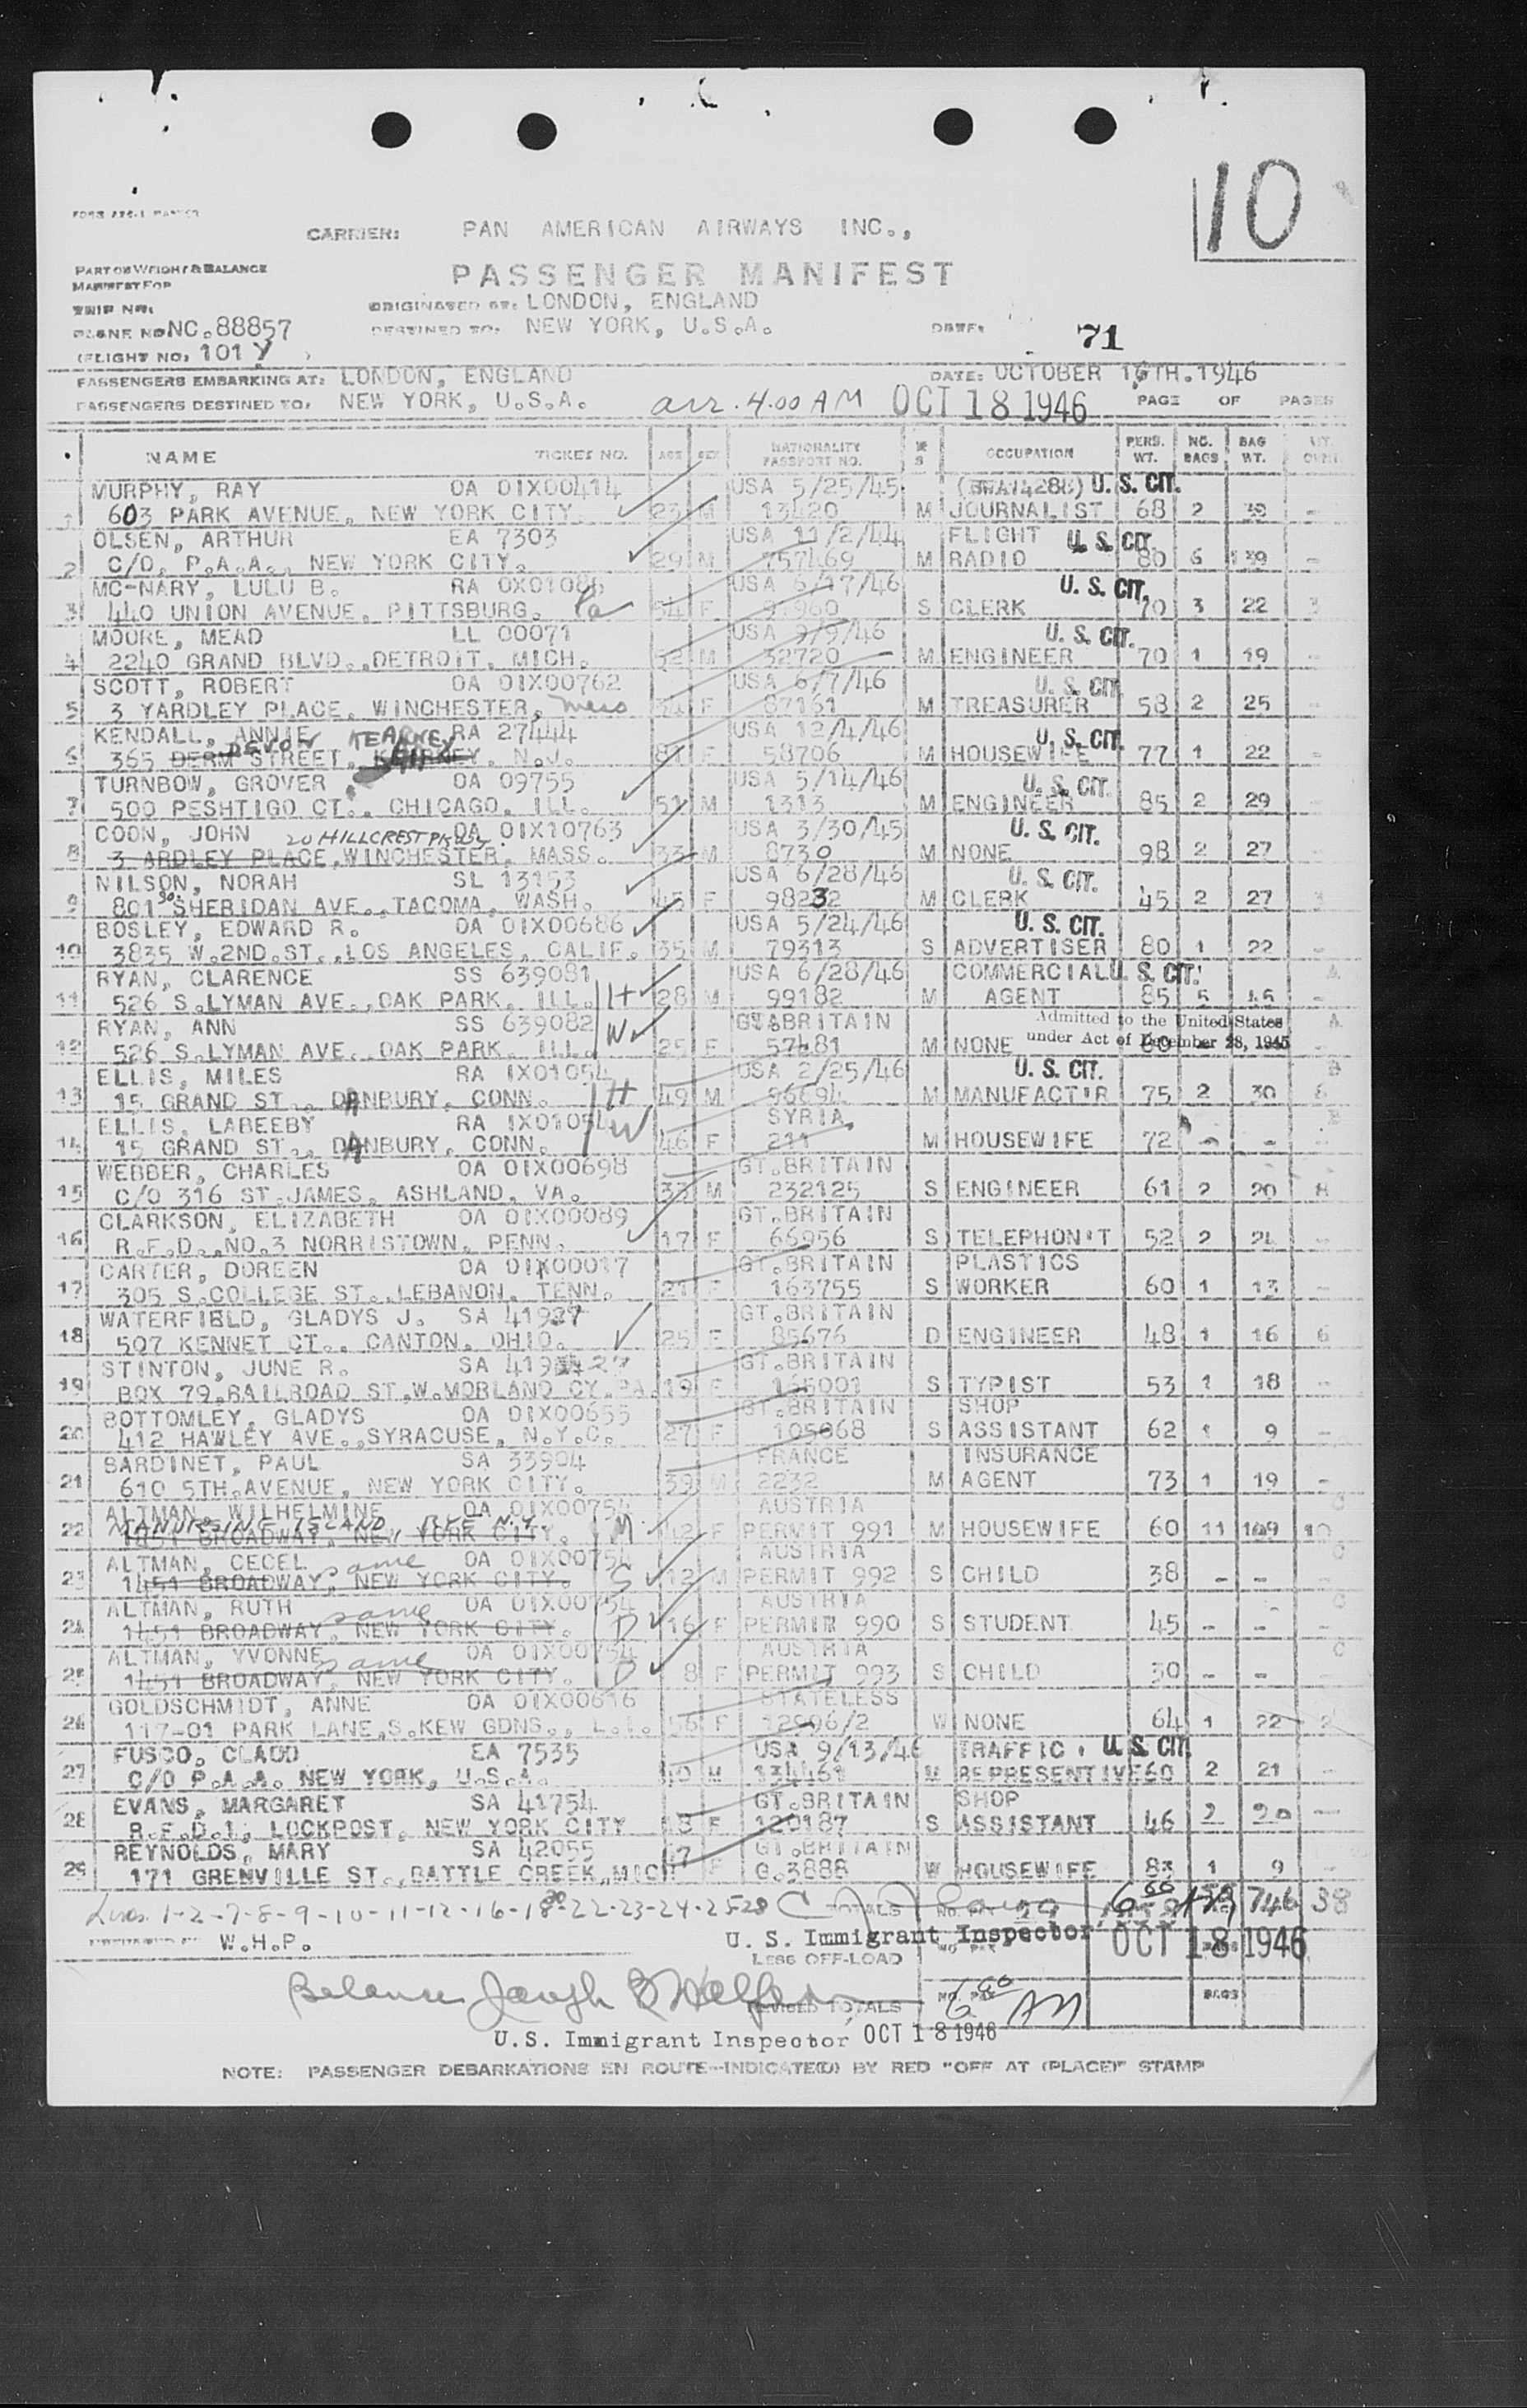 10
CARRIER: PAN AMERICAN AIRWAYS INC.,
PART ON WEIGHT & BALANCE
MANIFEST FOR
PASSENGER MANIFEST
TRIP NO:
ORIGINATED AT: LONDON, ENGLAND
PLANE NO NC.88857
DESTINED TO: NEW YORK, U.S.A.
DATE:
71
(FLIGHT NO: 101 Y )
PASSENGERS EMBARKING AT: LONDON, ENGLAND DATE: OCTOBER 16TH.1946
PASSENGERS DESTINED TO: NEW YORK, U.S.A. arr. 4.00 AM OCT 18 1946 PAGE OF PAGES
NAME TICKET NO. AGE SEX NATIONALITY PASSPORT NO. M S OCCUPATION PERS. WT. NO. BAGS BAG WT.
MURPHY, RAY OA OIX00414 USA 5/25/45 U. S. CIT.
1 603 PARK AVENUE, NEW YORK CITY. 23 M 13420 M JOURNALIST 68 2 -
OLSEN, ARTHUR EA 7303 USA 11/2/44 FLIGHT U. S. CIT.
2 C/O. P.A.A., NEW YORK CITY. 29 M 757469 M RADIO 80 6 -
MC-NARY, LULU B. RA OX01086 USA 6/17/46 U. S. CIT.
3 440 UNION AVENUE, PITTSBURG. Pa 54 F 91960 S CLERK 70 3 22 3
MOORE, MEAD LL 00071 USA 9/9/46 U. S. CIT.
4 2240 GRAND BLVD.,DETROIT. MICH. 52 M 32720 M ENGINEER 70 1 19 -
SCOTT, ROBERT OA OIX00762 USA 6/7/46 U. S. CIT.
5 3 YARDLEY PLACE, WINCHESTER, mass 34 F 87161 M TREASURER 58 2 25 -
KENDALL, ANNIE KEARNEY RA 27444 USA 12/4/46 U. S. CIT.
6 365 DERM DEVON STREET, KEARNEY. N.J. 81 F 58706 M HOUSEWIFE 77 1 22 -
TURNBOW, GROVER OA 09755 USA 5/14/46 U. S. CIT.
7 500 PESHTIGO CT., CHICAGO, ILL. 51 M 1313 M ENGINEER 85 2 29 -
COON, JOHN 20 HILLCREST PKWY. OA OIX10763 USA 3/30/45 U. S. CIT.
8 3 ARDLEY PLACE,WINCHESTER, MASS. 33 M 8730 M NONE 98 2 27 -
NILSON, NORAH SL 13153 USA 6/28/46 U. S. CIT.
9 801 so SHERIDAN AVE.,TACOMA, WASH. 45 F 98232 M CLERK 45 2 27 3
BOSLEY, EDWARD R. OA OIX00686 USA 5/24/46 U. S. CIT.
10 3835 W.2ND.ST.,LOS ANGELES, CALIF. 35 M 79313 S ADVERTISER 80 1 22 -
RYAN, CLARENCE SS 639081 USA 6/28/46 COMMERCIAL U. S. CIT. A
11 526 S.LYMAN AVE.,OAK PARK. ILL. H 28 M 99182 M AGENT 85 5 -
RYAN, ANN SS 639082 GT.BRITAIN Admitted to the United States A
12 526 S.LYMAN AVE., OAK PARK. ILL. W 25 F 57481 M NONE under Act of December 28, 1945
ELLIS, MILES RA IX01054 USA 2/25/46 U. S. CIT. B
13 15 GRAND ST., DANBURY, CONN. H 49 M 96694 M MANUFACT'R 75 2 30 6
ELLIS, LABEEBY RA IX01054 SYRIA
14 15 GRAND ST., DANBURY, CONN. W 46 F 211 M HOUSEWIFE 72 - - -
WEBBER, CHARLES OA OIX00698 GT.BRITAIN
15 C/O 316 ST.JAMES, ASHLAND, VA. 33 M 232125 S ENGINEER 61 2 20 8
CLARKSON, ELIZABETH OA OIX00089 GT.BRITAIN
16 R.F.D.,NO.3 NORRISTOWN, PENN. 17 F 66956 S TELEPHON'T 52 2 -
CARTER, DOREEN OA OIX00017 GT.BRITAIN PLASTICS
17 305 S.COLLEGE ST.,LEBANON, TENN. 21 F 163755 S WORKER 60 1 13 -
WATERFIELD, GLADYS J. SA 41927 GT.BRITAIN
18 507 KENNET CT., CANTON, OHIO. 25 F 85676 D ENGINEER 48 1 16 6
STINTON, JUNE R. GT.BRITAIN
19 BOX 79,RAILROAD ST.W.MORLAND CY.PA. 19 F 165001 S TYPIST 53 1 18 -
BOTTOMLEY, GLADYS OA OIX00655 GT.BRITAIN SHOP
20 412 HAWLEY AVE.,SYRACUSE, N.Y.C. 27 F 105868 S ASSISTANT 62 1 9
SARDINET, PAUL SA 33904 FRANCE INSURANCE
21 610 5TH.AVENUE, NEW YORK CITY. 39 M 2232 M AGENT 73 1 19 -
ALTMAN, WILHELMINE OA OIX00754 AUSTRIA C
MANURSING ISLAND RYE N.Y.
22 1451 BROADWAY, NEW YORK CITY. M 42 F PERMIT 991 M HOUSEWIFE 60 11 109 10
ALTMAN, CECEL same OA OIX00754 AUSTRIA C
23 1451 BROADWAY, NEW YORK CITY. S 12 M PERMIT 992 S CHILD 38 - -
ALTMAN, RUTH same OA OIX00754 AUSTRIA C
24 1451 BROADWAY, NEW YORK CITY. D 16 F PERMIT 990 S STUDENT 45 - - -
ALTMAN, YVONNE same OA OIX00754 AUSTRIA C
25 1451 BROADWAY, NEW YORK CITY. D 8 F PERMIT 993 S CHILD 30 - -
GOLDSCHMIDT, ANNE OA OIX00616 STATELESS
26 117-01 PARK LANE,S.KEW GDNS., L.I. 56 F 12996/2 W NONE 64 1 22 2
FUSCO, CLAUD EA 7535 USA 9/13/46 TRAFFIC U. S. CIT.
27 C/O P.A.A. NEW YORK, U.S.A. M 134461 M REPRESENTIVE 60 2 21 -
EVANS, MARGARET SA 41754 GT.BRITAIN SHOP
28 R.F.D.1, LOCKPOST, NEW YORK CITY 18 F 120187 S ASSISTANT 46 2 20 -
REYNOLDS, MARY SA 42055 47 GT.BRITAIN
29 171 GRENVILLE ST.,BATTLE CREEK,MICH F G.3888 W HOUSEWIFE 1 9 -
Lines 1-2-7-8-9-10-11-12-16-18-20-22-23-24-25-28 TOTALS 29 746 38
W.H.P. U. S. Immigrant Inspector OCT 18 1946
LESS OFF-LOAD
Balance Joseph
REVISED TOTALS NO. PAX 6 00 AM BAGS
U.S. Immigrant Inspector OCT 18 1946
NOTE: PASSENGER DEBARKATIONS EN ROUTE--INDICATE(D) BY RED "OFF AT (PLACE)" STAMP